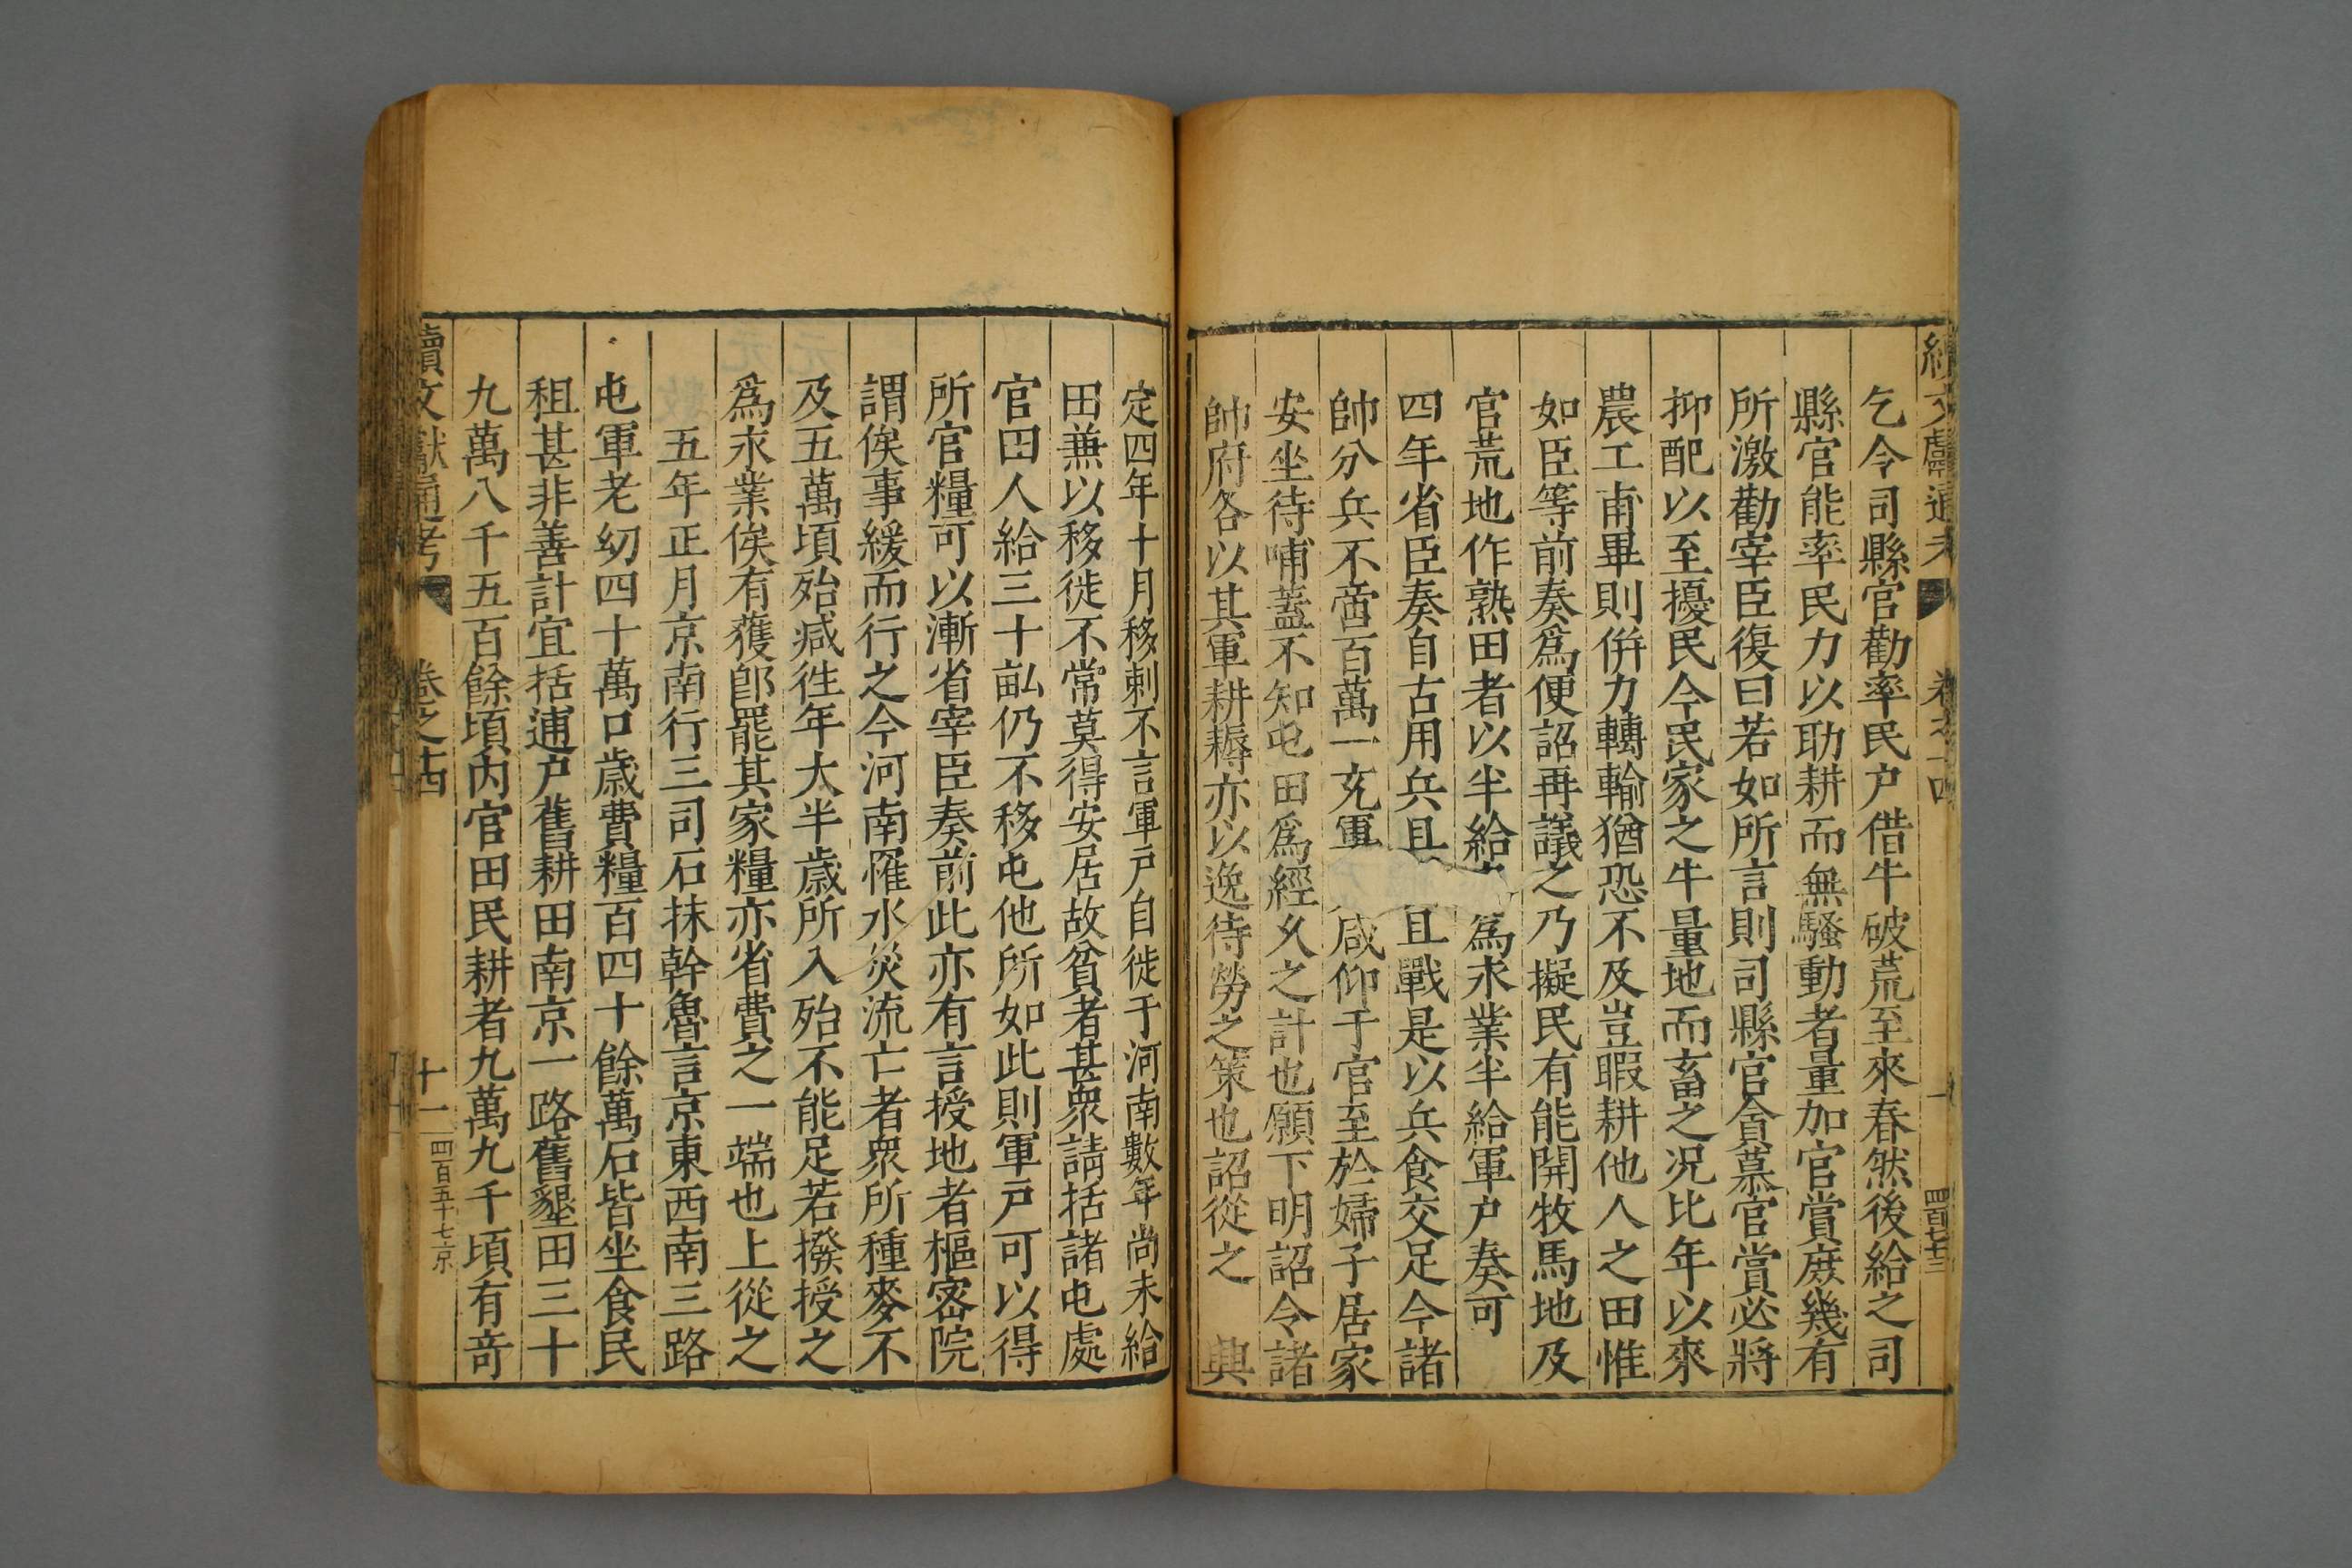 續文獻通考 卷之十四
乞令司縣官勸率民户借牛破荒至來春然後給之司
縣官能率民力以助耕而無騷動者量加官賞庶幾有
所激勸宰臣復曰若如所言則司縣官貪慕官賞必將
抑配以至擾民今民家之牛量地而畜之况比年以來
農工甫畢則併力轉輸猶恐不及豈暇耕他人之田惟
如臣等前奏爲便詔再議之乃擬民有能開牧馬地及
官荒地作熟田者以半給 爲永業半給軍户奏可
四年省臣奏自古用兵且 且戰是以兵食交足今諸
帥分兵不啻百萬一充軍 咸仰于官至於婦子居家
安坐待哺蓋不知屯田爲經久之計也願下明詔令諸
帥府各以其軍耕耨亦以逸待勞之策也詔從之 興
定四年十月移剌不言軍户自徙于河南數年尚未給
田兼以移徙不常莫得安居故貧者甚衆請括諸屯處
官田人給三十畝仍不移屯他所如此則軍户可以得
所官糧可以漸省宰臣奏前此亦有言授地者樞密院
謂俟事緩而行之今河南罹水災流亡者衆所種麥不
及五萬頃殆减徃年大半歲所入殆不能足若撥授之
爲永業俟有穫卽罷其家糧亦省費之一端也上從之
五年正月京南行三司石抹斡魯言京東西南三路
屯軍老幼四十萬口歲費糧百四十餘萬石皆坐食民
租甚非善計宜括逋户舊耕田南京一路舊墾田三十
九萬八千五百餘頃内官田民耕者九萬九千頃有竒
續文獻通考 卷之十四 十一 四百五十七 京